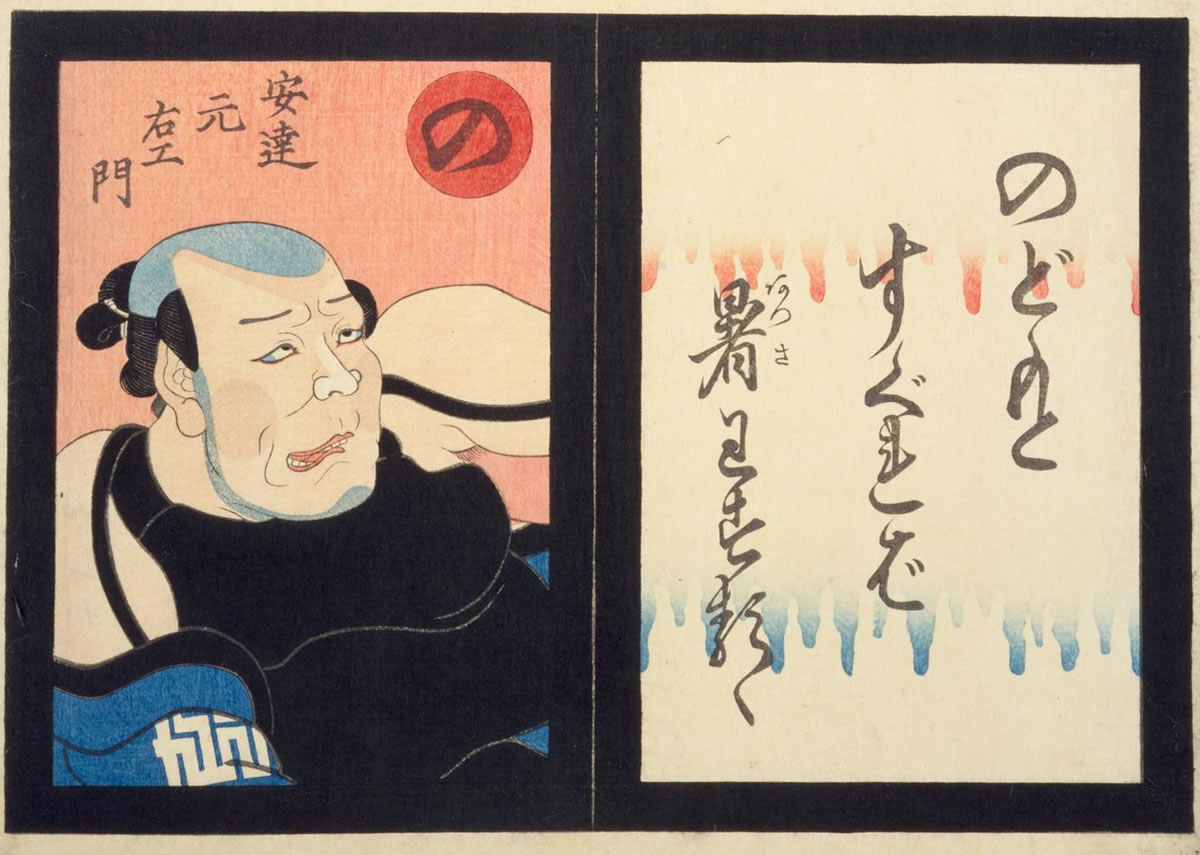 のどもと
すぐれば
あつさ
暑わするゝ
の
安達
元
右エ
門